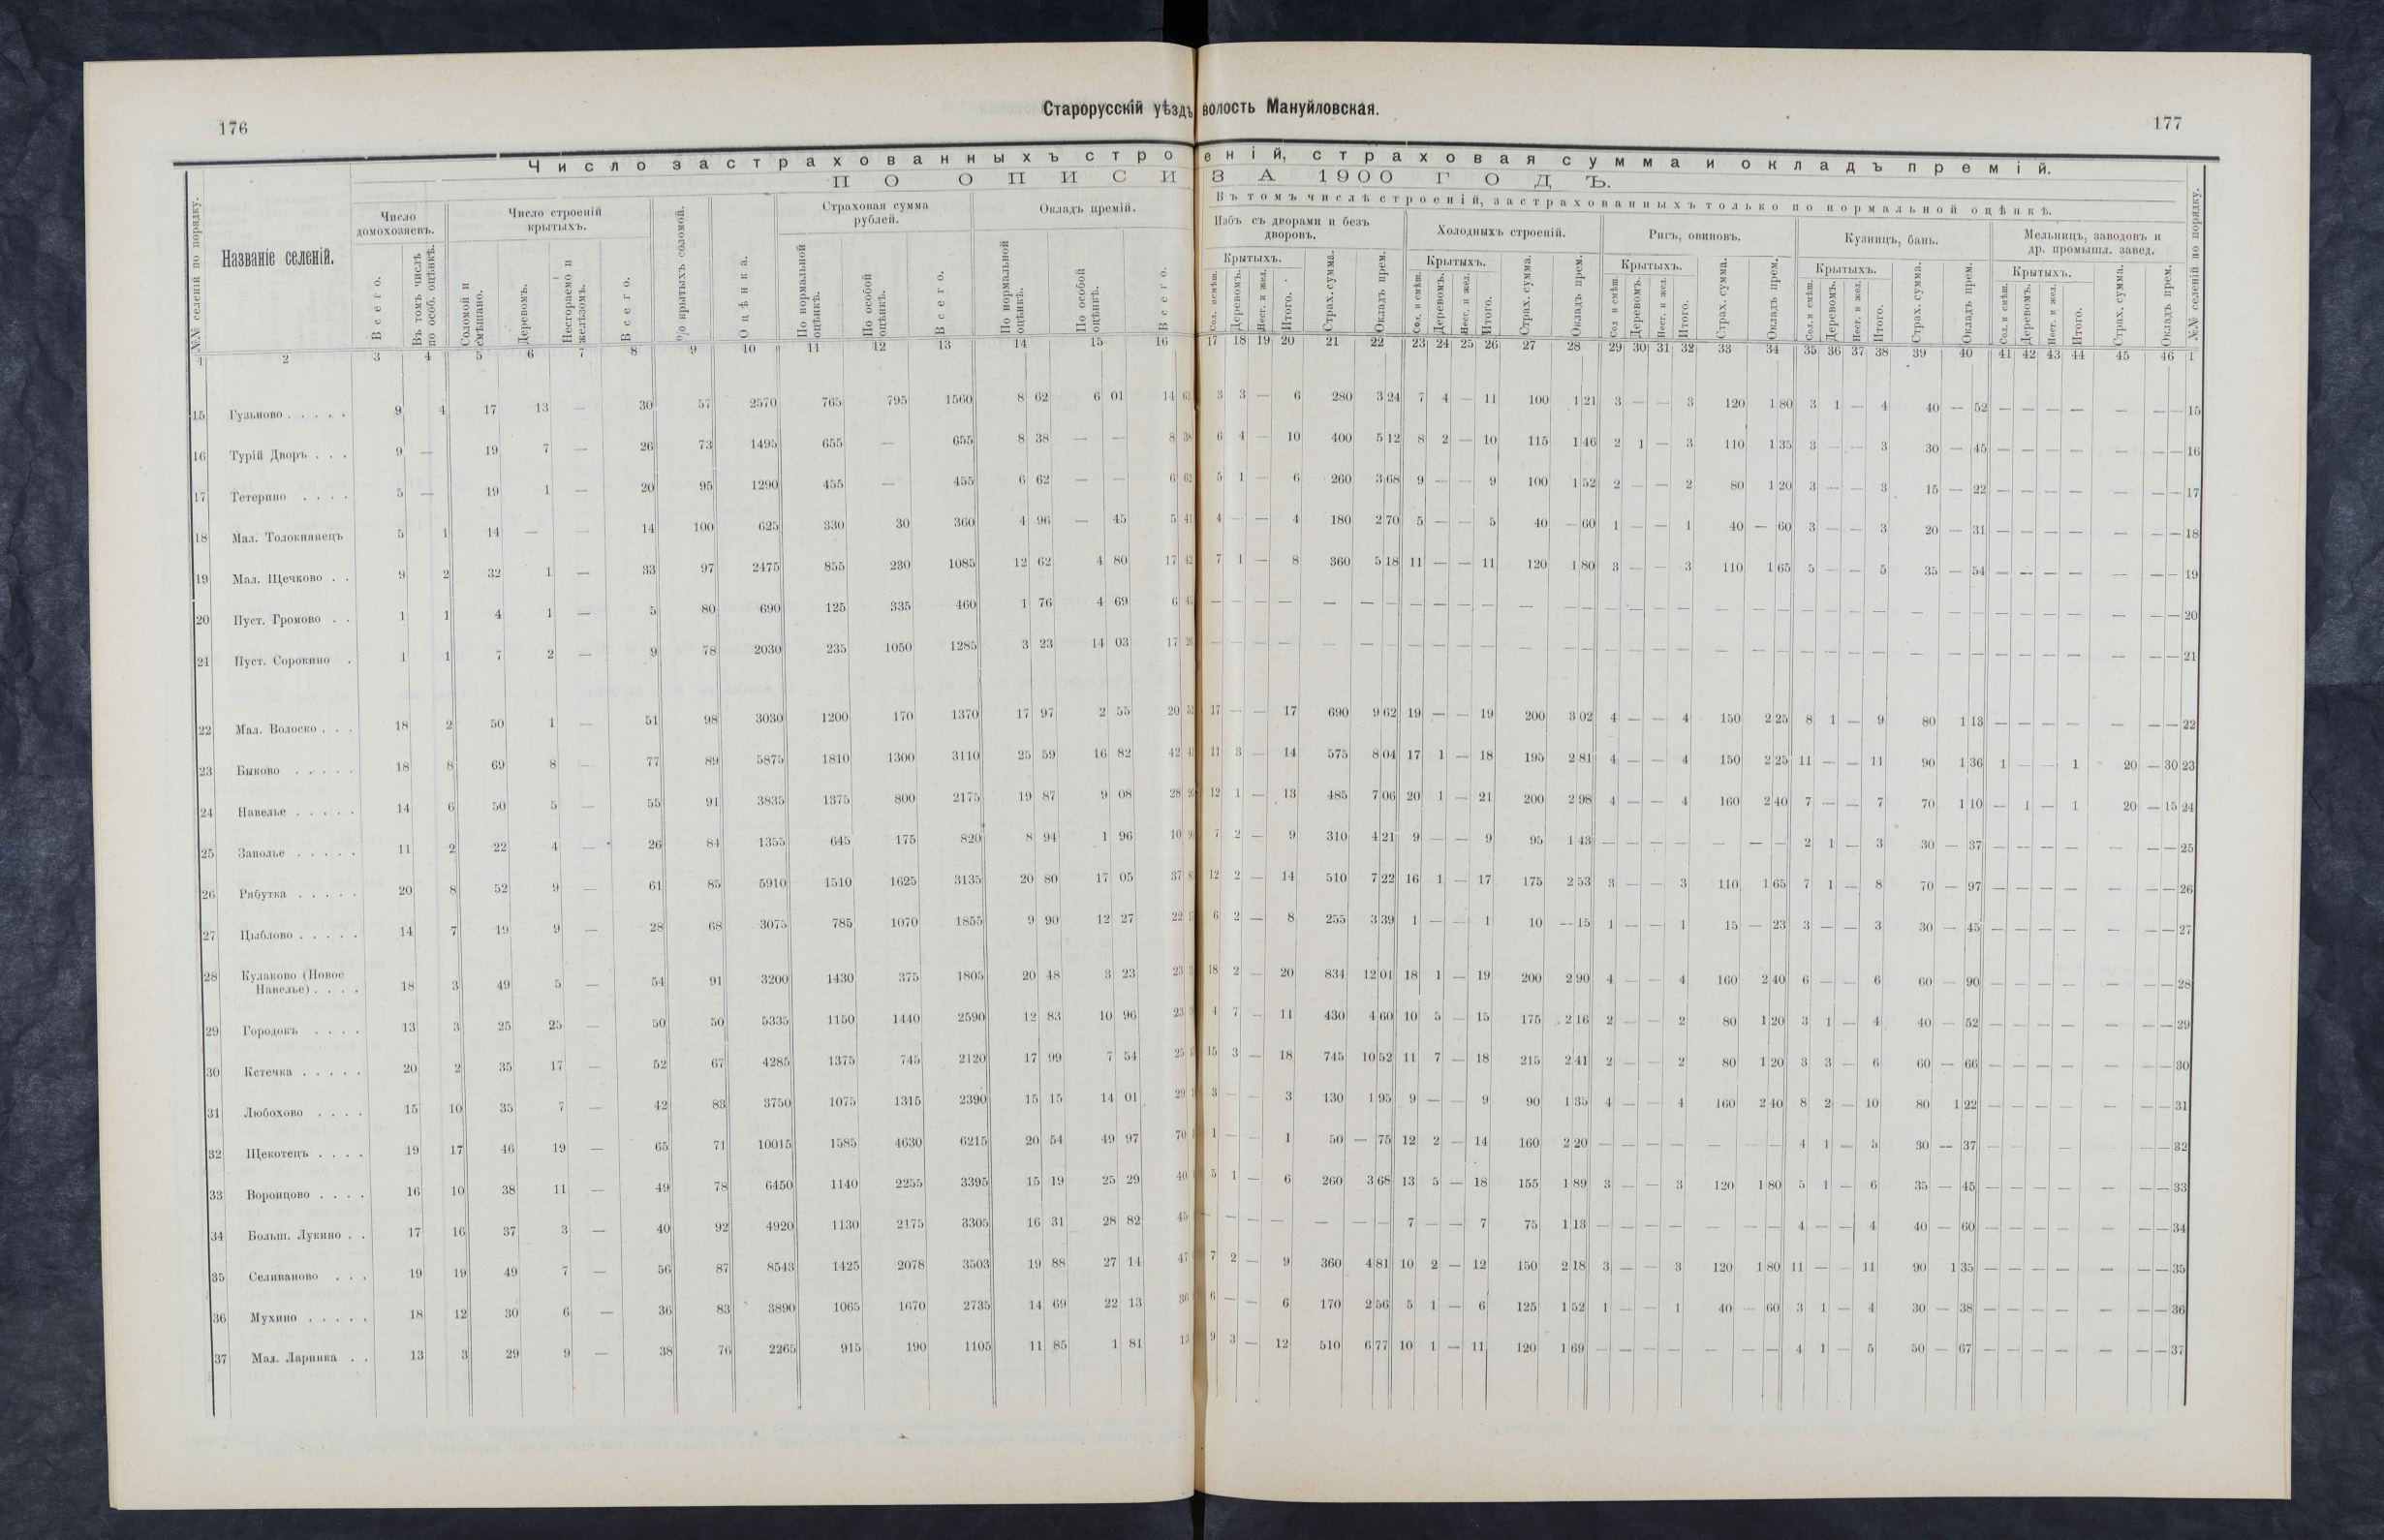 176
Старорусскій уѣздъ
волость Мануйловская.
177
Число застрахованныхъ строеній, страховая сумма и окладъ премій.
ПО ОПИСИ ЗА 1900 ГОДЪ.
Въ томъ числѣ строеній, застрахованныхъ только по нормальной оцѣнкѣ.
№№ селеній по порядку.
Названіе селеній.
Число домохозяевъ.
Всего.
Въ томъ числѣ по особ. оцѣнкѣ.
Число строеній крытыхъ.
Соломой и смѣшано.
Деревомъ.
Несгораемо и желѣзомъ.
Всего.
% крытыхъ соломой.
Оцѣнка.
Страховая сумма рублей.
По нормальной оцѣнкѣ.
По особой оцѣнкѣ.
Всего.
Окладъ премій.
По нормальной оцѣнкѣ.
По особой оцѣнкѣ.
Всего.
Избъ съ дворами и безъ дворовъ.
Крытыхъ.
Деревомъ.
Несг. и жел.
Итого.
Страх. сумма.
Окладъ прем.
Холодныхъ строеній.
Крытыхъ.
Сол. и смѣш.
Деревомъ.
Несг. и жел.
Итого.
Страх. сумма.
Окладъ прем.
Ригъ, овиновъ.
Крытыхъ.
Сол и смѣш.
Деревомъ.
Несг. и жел.
Итого.
Страх. сумма.
Окладъ прем.
Кузницъ, бань.
Крытыхъ.
Сол. и смѣш.
Деревомъ.
Несг. и жел.
Итого.
Страх. сумма.
Окладъ прем.
Мельницъ, заводовъ и др. промышл. завед.
Крытыхъ.
Сол. и смѣш.
Деревомъ.
Несг. и жел.
Итого.
Страх. сумма.
Окладъ прем.
№№ селеній по порядку.
1 2 3 4 5 6 7 8 9 10 11 12 13 14 15 16 17 18 19 20 21 22 23 24 25 26 27 28 29 30 31 32 33 34 35 36 37 38 39 40 41 42 43 44 45 46 1
15 Гузьново . . . . . 9 4 17 13 — 30 57 2570 765 795 1560 8 62 6 01 14 63 3 3 — 6 280 3 24 7 4 — 11 100 1 21 3 — — 3 120 1 80 3 1 — 4 40 — 52 — — — — — — — 15
16 Турій Дворъ . . . 9 — 19 7 — 26 73 1495 655 — 655 8 38 — — 8 38 6 4 — 10 400 5 12 8 2 — 10 115 1 46 2 1 — 3 110 1 35 3 — — 3 30 — 45 — — — — — — — 16
17 Тетерино . . . . 5 — 19 1 — 20 95 1290 455 — 455 6 62 — — 6 62 5 1 — 6 260 3 68 9 — — 9 100 1 52 2 — — 2 80 1 20 3 — — 3 15 — 22 — — — — — — — 17
18 Мал. Толокнянецъ 5 1 14 — — 14 100 625 330 30 360 4 96 — 45 5 41 4 — — 4 180 2 70 5 — — 5 40 — 60 1 — — 1 40 — 60 3 — — 3 20 — 31 — — — — — — — 18
19 Мал. Щечково . . 9 2 32 1 — 33 97 2475 855 230 1085 12 62 4 80 17 42 7 1 — 8 360 5 18 11 — — 11 120 1 80 3 — — 3 110 1 65 5 — — 5 35 — 54 — — — — — — — 19
20 Пуст. Громово . . 1 1 4 1 — 5 80 690 125 335 460 1 76 4 69 6 — — — — — — — — — — — — — — — — — — — — — — — — — — — — — — — — — 20
21 Пуст. Сорокино . 1 1 7 2 — 9 78 2030 235 1050 1285 3 23 14 03 17 26 — — — — — — — — — — — — — — — — — — — — — — — — — — — — — — — — — 21
22 Мал. Волоско . . . 18 2 50 1 — 51 98 3030 1200 170 1370 17 97 2 55 20 52 17 — — 17 690 9 62 19 — — 19 200 3 02 4 — — 4 150 2 25 8 1 — 9 80 1 13 — — — — — — — 22
23 Быково . . . . . 18 8 69 8 — 77 89 5875 1810 1300 3110 25 59 16 82 42 11 3 — 14 575 8 04 17 1 — 18 195 2 81 4 — — 4 150 2 25 11 — — 11 90 1 36 1 — — 1 20 — 30 23
24 Навелье . . . . . 14 6 50 5 — 55 91 3835 1375 800 2175 19 87 9 08 28 12 1 — 13 485 7 06 20 1 — 21 200 2 98 4 — — 4 160 2 40 7 — — 7 70 1 10 — 1 — 1 20 — 15 24
25 Заполье . . . . . 11 2 22 4 — 26 84 1355 645 175 820 8 94 1 96 10 7 2 — 9 310 4 21 9 — — 9 95 1 43 — — — — — — — 2 1 — 3 30 — 37 — — — — — — — 25
26 Рябутка . . . . . 20 8 52 9 — 61 85 5910 1510 1625 3135 20 80 17 05 37 12 2 — 14 510 7 22 16 1 — 17 175 2 53 3 — — 3 110 1 65 7 1 — 8 70 — 97 — — — — — — — 26
27 Цыблово . . . . . 14 7 19 9 — 28 68 3075 785 1070 1855 9 90 12 27 22 6 2 — 8 255 3 39 1 — — 1 10 — 15 1 — — 1 15 — 23 3 — — 3 30 — 45 — — — — — — — 27
28 Кулаково (Новое
Навелье) . . . . 18 3 49 5 — 54 91 3200 1430 375 1805 20 48 3 23 23 18 2 — 20 834 12 01 18 1 — 19 200 2 90 4 — — 4 160 2 40 6 — — 6 60 — 90 — — — — — — — 28
29 Городокъ . . . . 13 3 25 25 — 50 50 5335 1150 1440 2590 12 83 10 96 23 4 7 — 11 430 4 60 10 5 — 15 175 2 16 2 — — 2 80 1 20 3 1 — 4 40 — 52 — — — — — — — 29
30 Кстечка . . . . . 20 2 35 17 — 52 67 4285 1375 745 2120 17 99 7 54 25 15 3 — 18 745 10 52 11 7 — 18 215 2 41 2 — — 2 80 1 20 3 3 — 6 60 — 66 — — — — — — — 30
31 Любохово . . . . 15 10 35 7 — 42 83 3750 1075 1315 2390 15 15 14 01 29 3 — — 3 130 1 95 9 — — 9 90 1 35 4 — — 4 160 2 40 8 2 — 10 80 1 22 — — — — — — — 31
32 Щекотецъ . . . . 19 17 46 19 — 65 71 10015 1585 4630 6215 20 54 49 97 70 1 — — 1 50 — 75 12 2 — 14 160 2 20 — — — — — — — 4 1 — 5 30 — 37 — — — — — — 32
33 Воронцово . . . . 16 10 38 11 — 49 78 6450 1140 2255 3395 15 19 25 29 40 5 1 — 6 260 3 68 13 5 — 18 155 1 89 3 — — 3 120 1 80 5 1 — 6 35 — 45 — — — — — — — 33
34 Больш. Лукино . . 17 16 37 3 — 40 92 4920 1130 2175 3305 16 31 28 82 45 — — — — — — — 7 — — 7 75 1 13 — — — — — — — 4 — — 4 40 — 60 — — — — — — — 34
35 Селиваново . . . 19 19 49 7 — 56 87 8543 1425 2078 3503 19 88 27 14 47 7 2 — 9 360 4 81 10 2 — 12 150 2 18 3 — — 3 120 1 80 11 — — 11 90 1 35 — — — — — — — 35
36 Мухино . . . . . 18 12 30 6 — 36 83 3890 1065 1670 2735 14 69 22 13 36 6 — — 6 170 2 56 5 1 — 6 125 1 52 1 — — 1 40 — 60 3 1 — 4 30 — 38 — — — — — — — 36
37 Мал. Ларинка . . 13 3 29 9 — 38 76 2265 915 190 1105 11 85 1 81 13 9 3 — 12 510 6 77 10 1 — 11 120 1 69 — — — — — — — 4 1 — 5 50 — 67 — — — — — — — 37